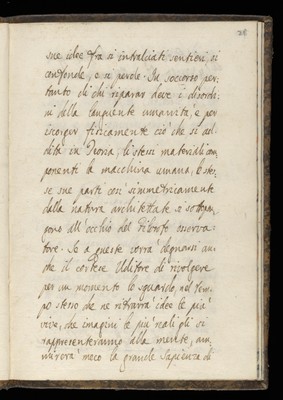 28
sue idee fra si intralciati sentieri, si
confonde, e si perde. In soccorso per,
tanto di chi riparar deve i disordi,
ni della languente umanità, e per
iscorger fisicamente ciò che si ad,
dita in Teoria, li stessi materiali com,
ponenti la macchina umana, le stes,
se sue parti così simmetricamente
dalla natura architettate si sottopon,
gono all'occhio del Filosofo osserva,
tore. Se a queste vorrà degnarsi an,
che il cortese Uditore di rivolgere
per un momento lo sguardo, nel tem,
po stesso che ne ritrarrà idee le più
vive, che imagini le più reali gli si
rappresenteranno alla mente, am,
mirerà meco la grande Sapienza di